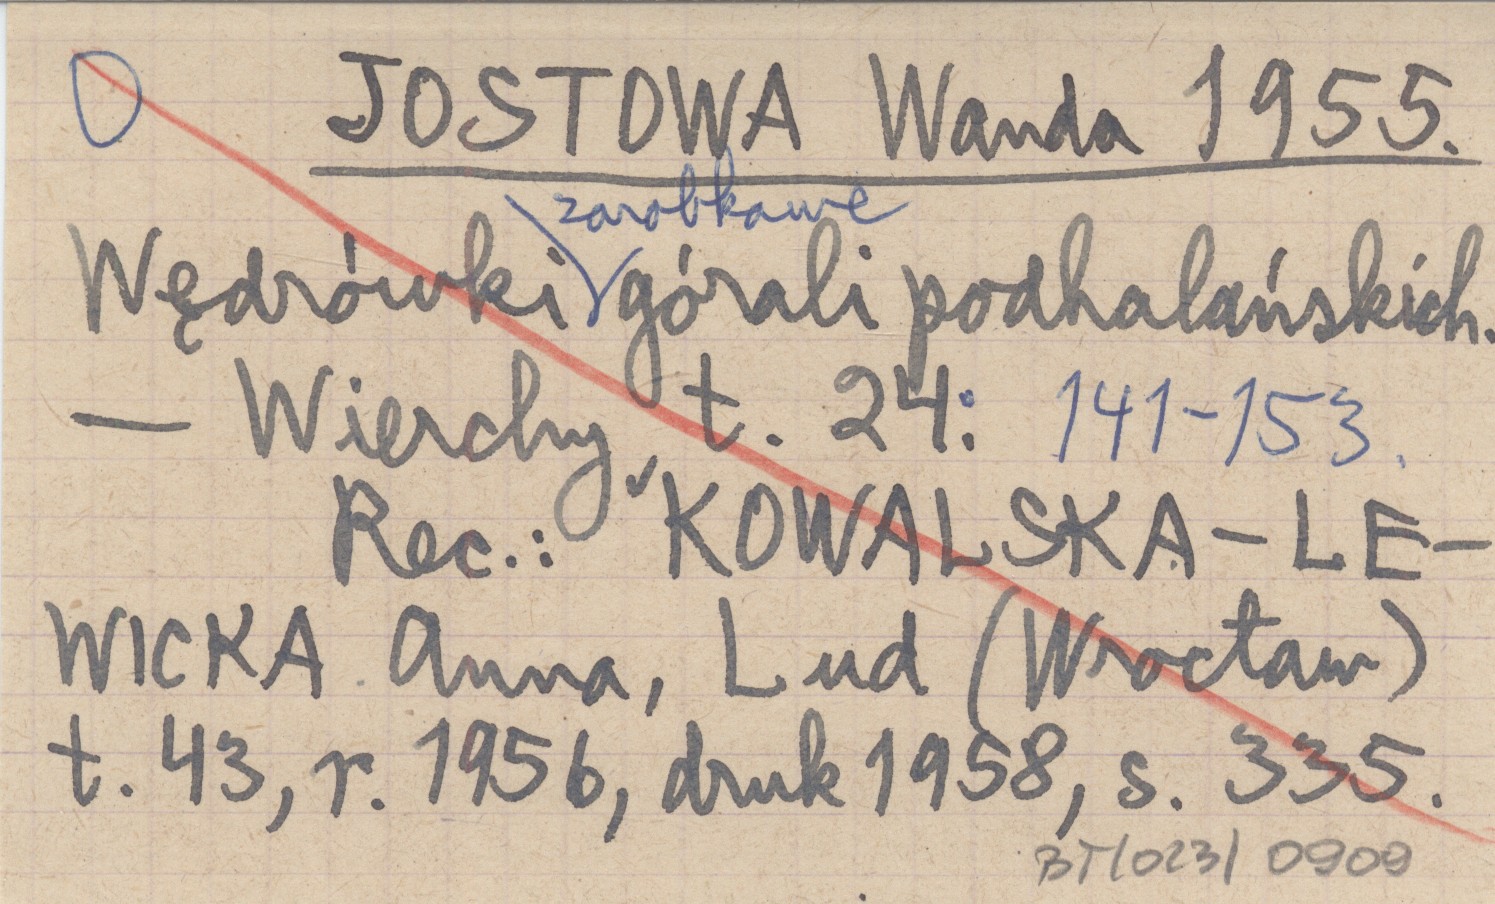 O JOSTOWA Wanda 1955.
zarobkowe
Wędrówki górali podhalańskich.
— Wierchy, t. 24: 141-153.
Rec.: KOWALSKA-LE-
WICKA Anna, Lud (Wrocław)
t. 43, r. 1956, druk 1958, s. 335.
BT/023/0909